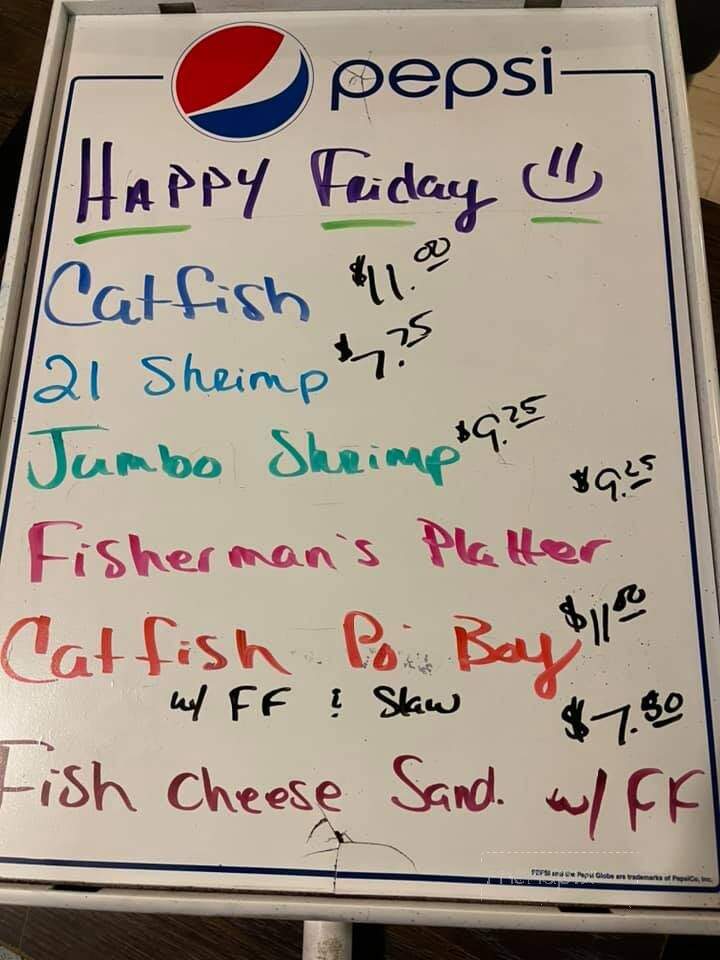 pepsi
HAPPY Friday
Catfish $11.00
21 Shrimp $7.75
Jumbo Shrimp $9.25
$9.25
Fisherman's Platter
Catfish Po Boy $11.00
w/ FF & Slaw
$7.50
Fish Cheese Sand. w/ FF
PEPSI and the Pepsi Globe are trademarks of PepsiCo, Inc.